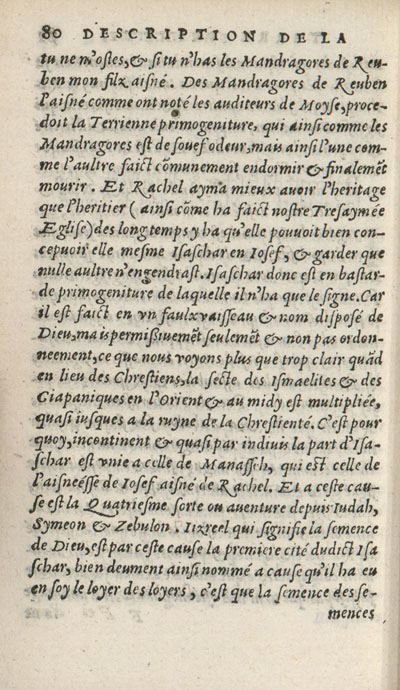 80 DESCRIPTION DE LA
tu ne m'ostes, & si tu n'has les Mandragores de Reu-
ben mon filz aisné. Des Mandragores de Reuben
l'aisné comme ont noté les auditeurs de Moyse, proce-
doit la Terrienne primogeniture, qui ainsi comme les
Mandragores est de souef odeur, mais ainsi l'une com-
me l'aultre faict cõmunement endormir & finalemẽt
mourir. Et Rachel ayma mieux auoir l'heritage
que l'heritier (ainsi cõme ha faict nostre Tresaymée
Eglise) des long temps y ha qu'elle pouuoit bien con-
cepuoir elle mesme Isaschar en Iosef, & garder que
nulle aultre n'engendrast. Isaschar donc est en bastar-
de primogeniture de laquelle il n'ha que le signe. Car
il est faict en vn faulx vaisseau & nom disposé de
Dieu, mais permissiuemẽt seulemẽt & non pas ordon-
neement, ce que nous voyons plus que trop clair quãd
en lieu des Chrestiens, la secte des Ismaelites & des
Ciapaniques en l'Orient & au midy est multipliée,
quasi iusques a la ruyne de la Chrestienté. C'est pour
quoy, incontinent & quasi par indiuis la part d'Isa-
schar est vnie a celle de Manasseh, qui est celle de
l'aisneésse de Iosef aisné de Rachel. Et a ceste cau-
se est la Quatriesme sorte ou auenture depuis Iudah,
Symeon & Zebulon. Iizreel qui signifie la semence
de Dieu, est par ceste cause la premiere cité dudict Isa
schar, bien deument ainsi nommé a cause qu'il ha eu
en soy le loyer des loyers, c'est que la semence des se-
mences